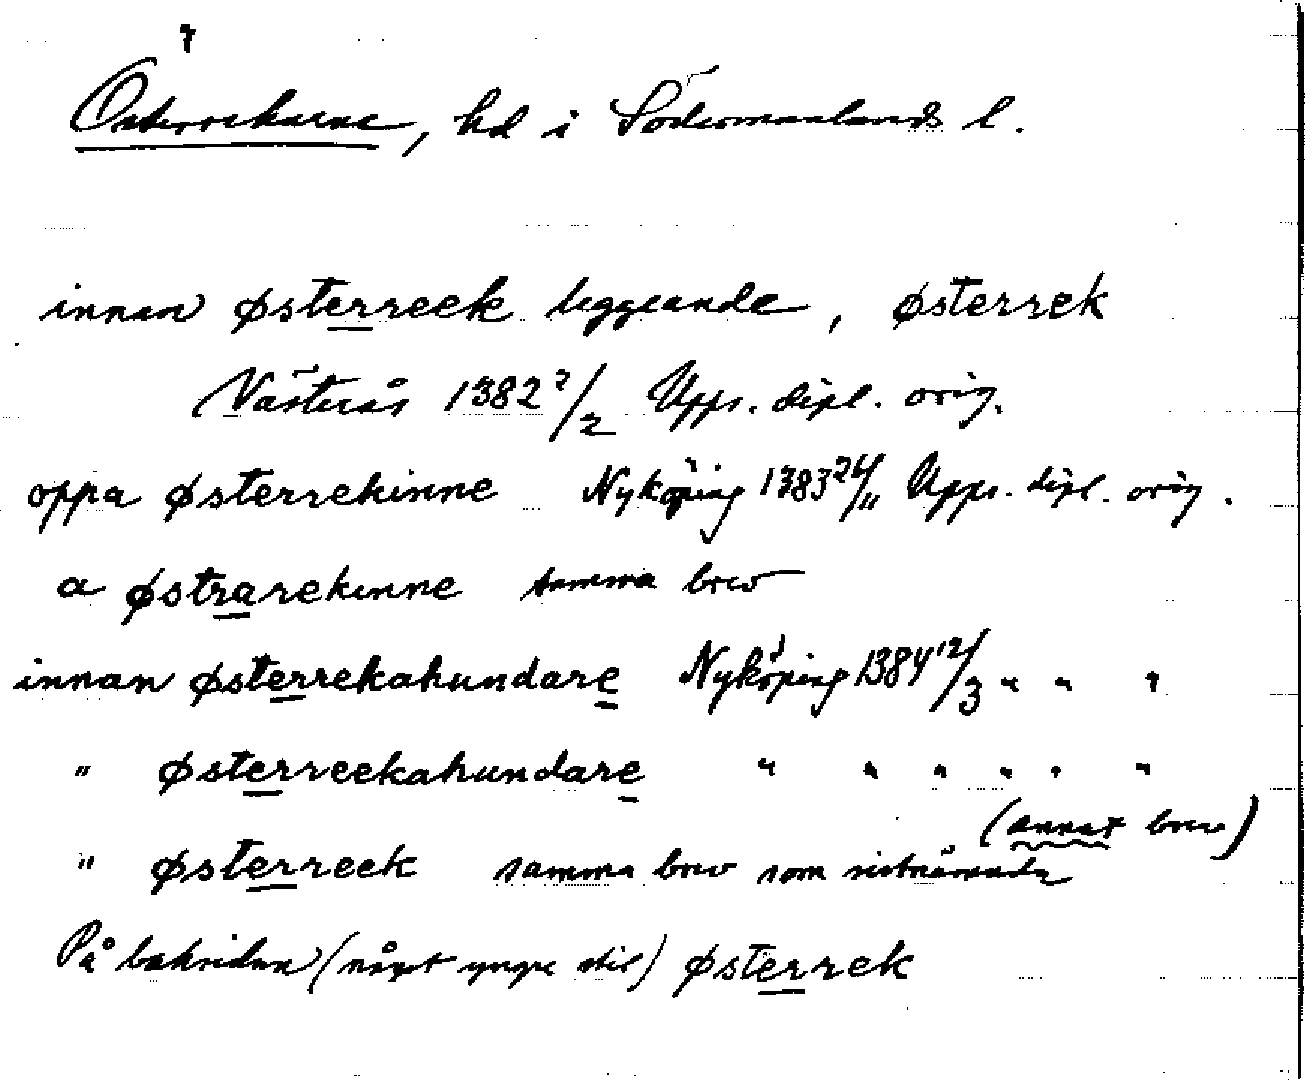 7
Österrekarne, hd i Södermanlands l.
innan østerreek liggeande, østerrek
Västerås 1382 2/2 Upps. dipl. orig.
oppa østerrekinne Nyköping 1383 24/11 Upps. dipl. orig.
a østrarekinne samma brev
innan østerrekahundare Nyköping 1384 12/3 " " "
" østerreekahundare " " " " " "
(annat brev)
" østerreek samma brev som sistnämnda
På baksidan (något yngre stil) østerrek